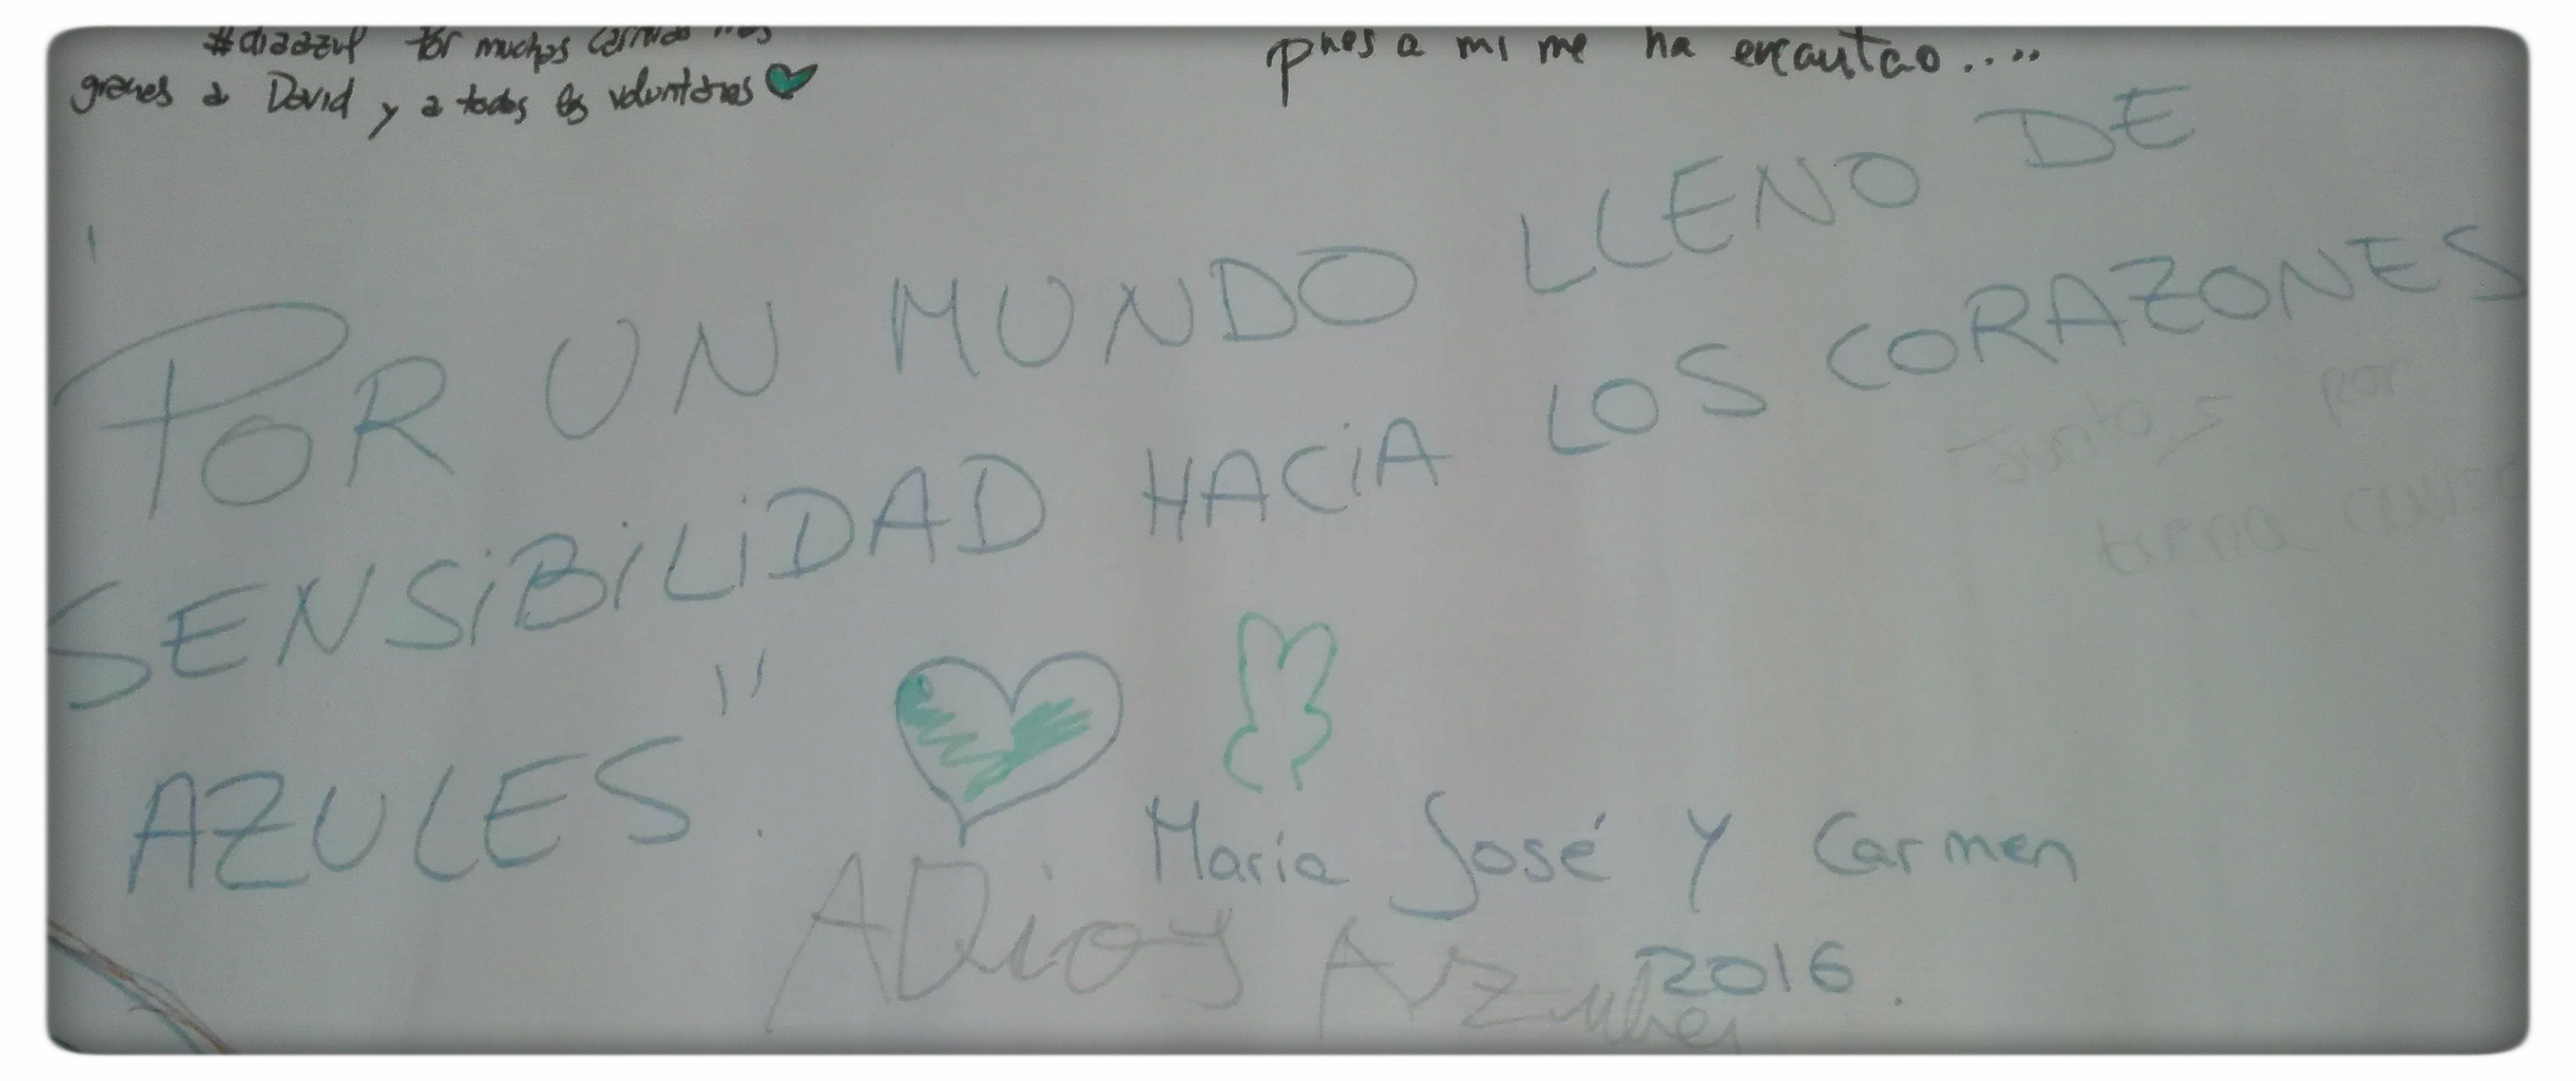 #diaazul Por muchas
gracias a David y a todos los voluntarios
pues a mi me ha encantao....
"POR UN MUNDO LLENO DE
SENSiBiLiDAD HACiA LOS CORAZONES
AZULES".
Juntos por
María José Y Carmen
2016.
ADios